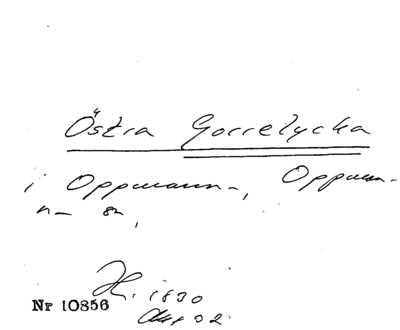 Östra Gorrelycka
i Oppmanna, Oppman-
na sn,
H. 1830
Nr 10856